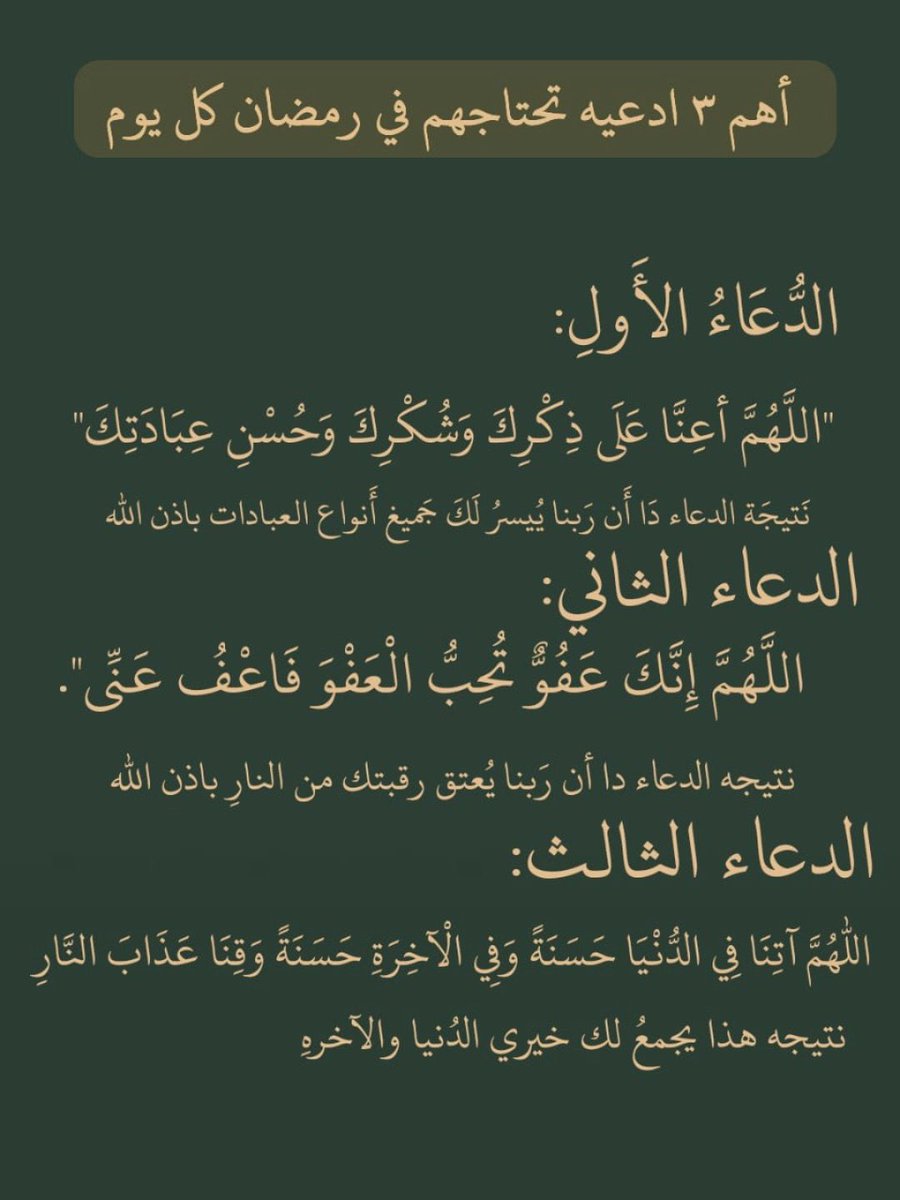 أهم ٣ ادعيه تحتاجهم في رمضان كل يوم
الدُّعَاءُ الأَولِ:
"اللَّهُمَّ أعِنَّا عَلَى ذِكْرِكَ وَشُكْرِكَ وَحُسْنِ عِبَادَتِكَ"
نَتيجَة الدعاء دَا أَن رَبنا يُيسرُ لَكَ جَميغ أَنواع العبادات باذن الله
الدعاء الثاني:
اللَّهُمَّ إِنَّكَ عَفُوٌّ تُحِبُّ الْعَفْوَ فَاعْفُ عَنِّى".
نتيجه الدعاء دا أن رَبنا يُعتق رقبتك من النارِ باذن الله
الدعاء الثالث:
اللَّهُمَّ آتِنَا فِي الدُّنْيَا حَسَنَةً وَفِي الْآخِرَةِ حَسَنَةً وَقِنَا عَذَابَ النَّارِ
نتيجه هذا يجمعُ لك خيري الدُنيا والآخرهِ